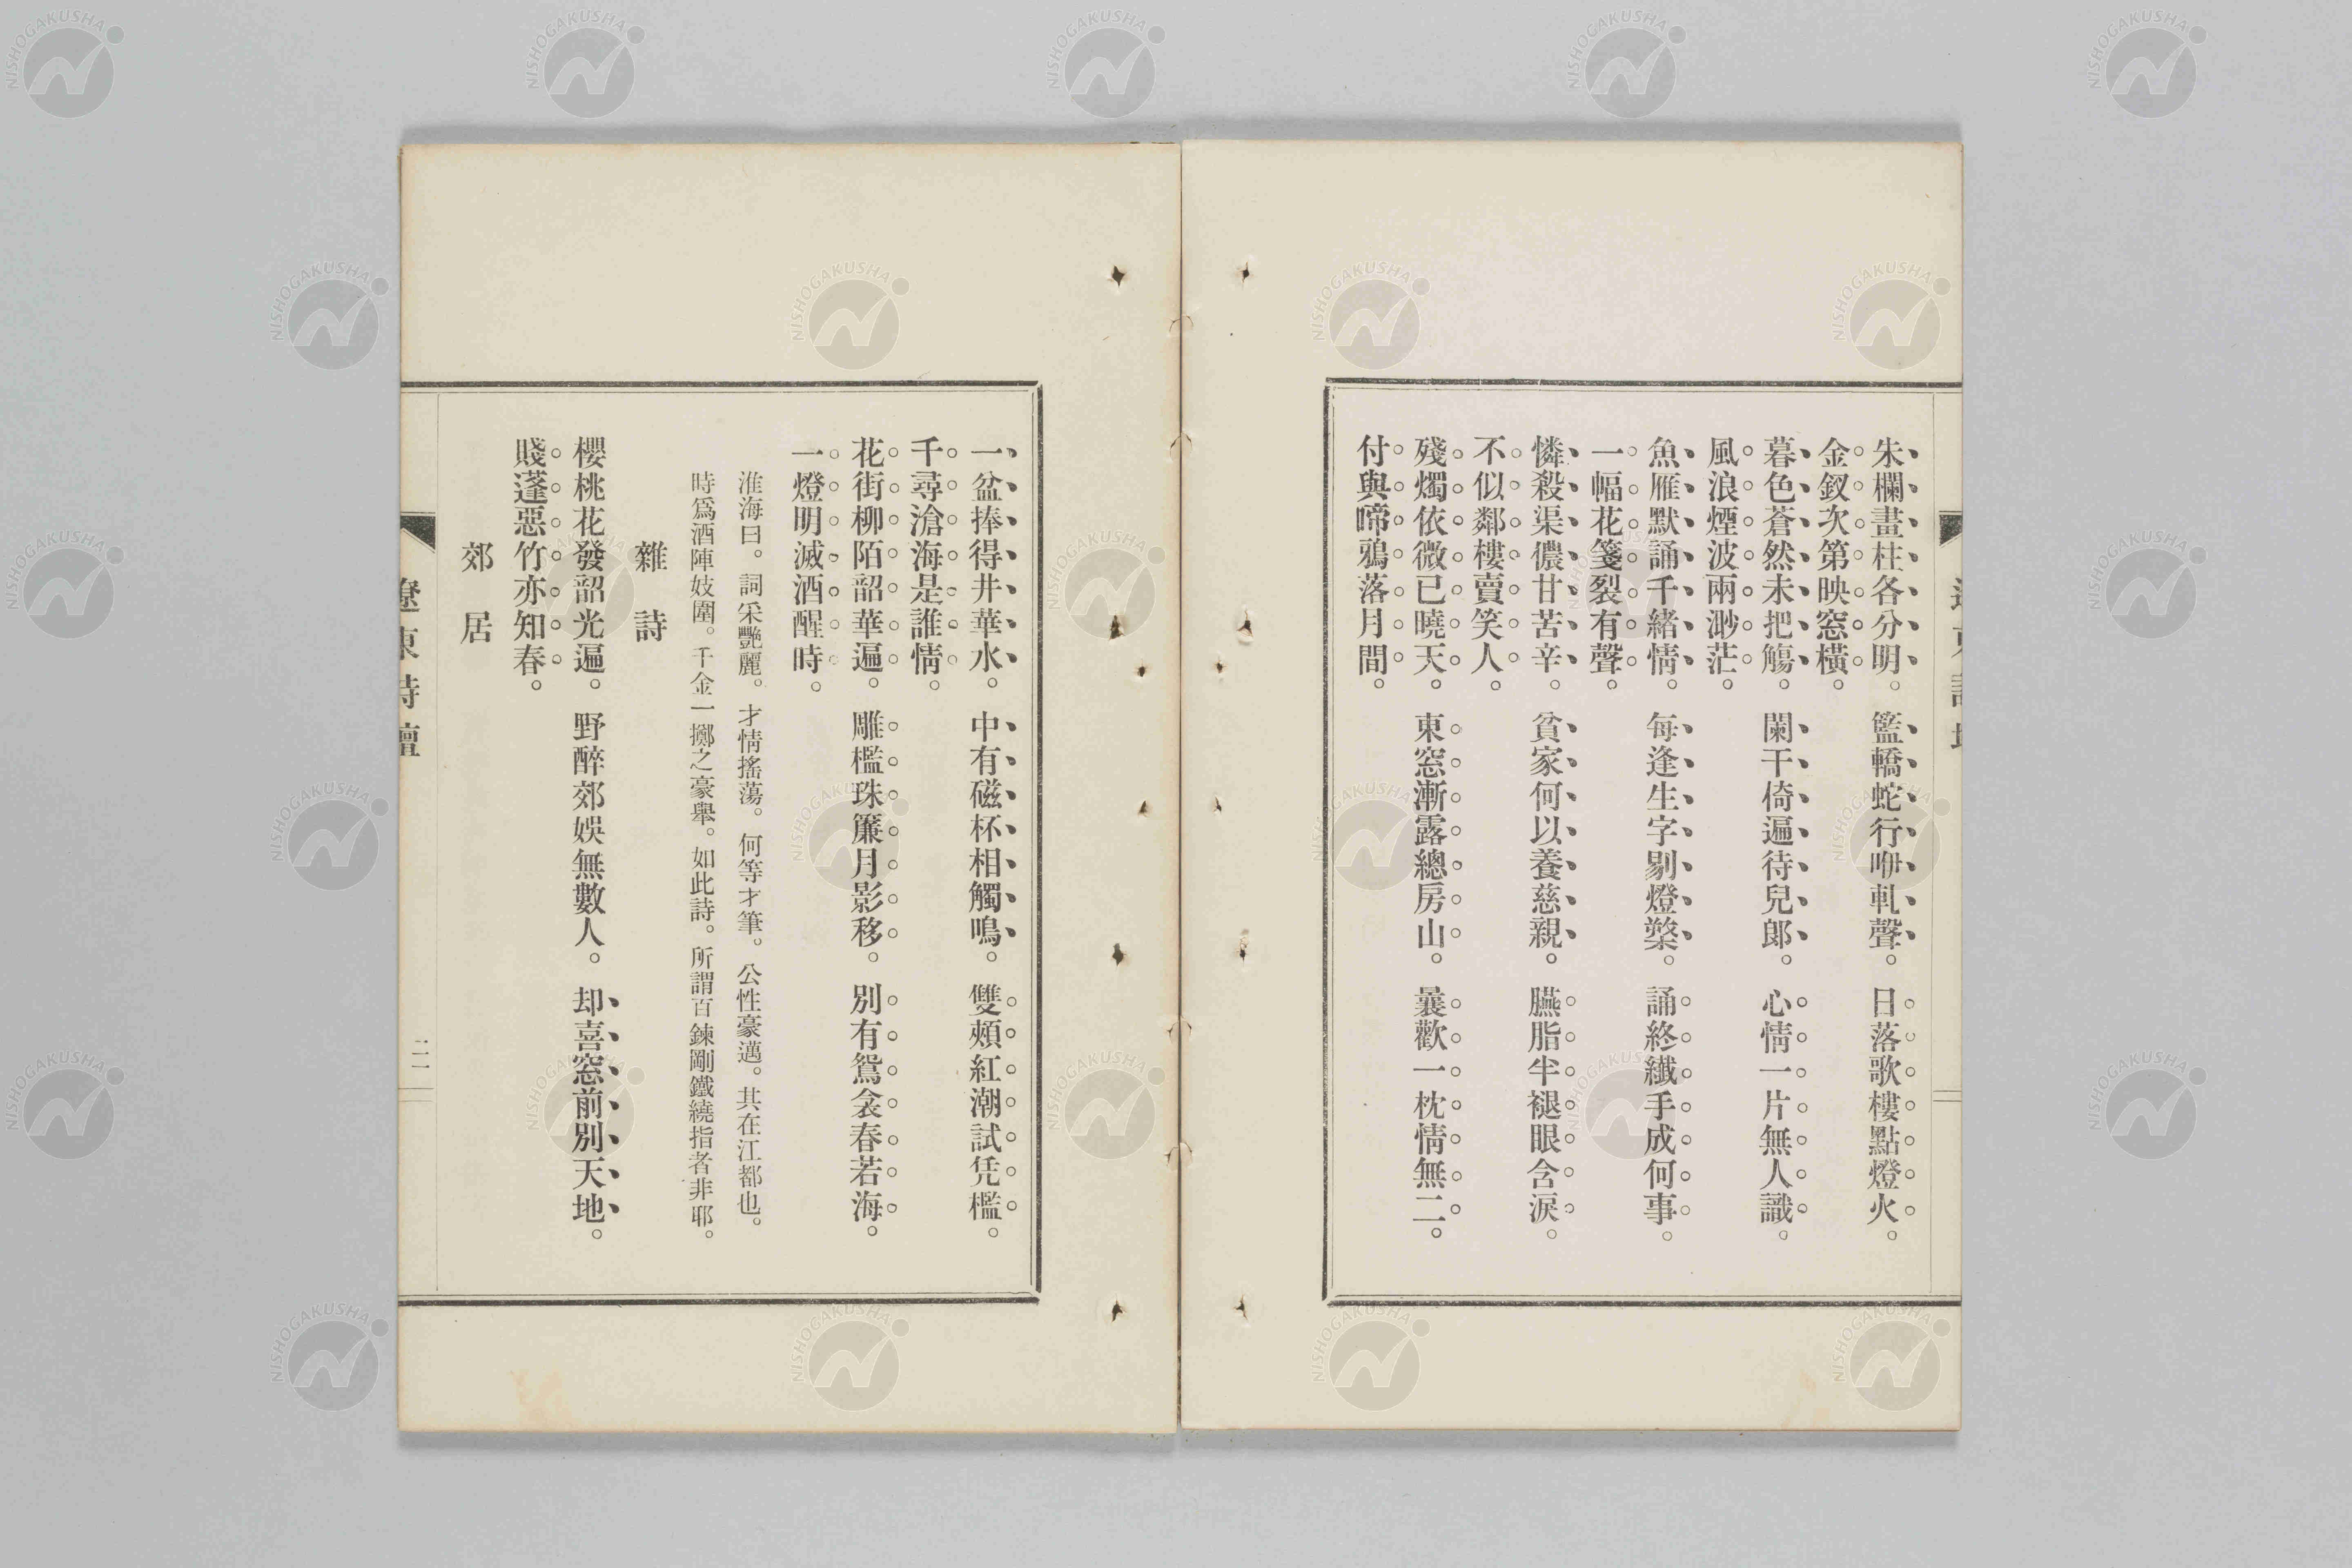 朱欄畫柱各分明。籃轎蛇行咿軋聲。日落歌樓點燈火。
金釵次第映窓橫。
暮色蒼然未把觴。闌干倚遍待兒郎。心情一片無人識。
風浪煙波兩渺茫。
魚雁默誦千緒情。每逢生字剔燈檠。誦終纖手成何事。
一幅花箋裂有聲。
憐殺渠儂甘苦辛。貧家何以養慈親。臙脂半褪眼含淚。
不似鄰樓賣笑人。
殘燭依微已曉天。東窓漸露總房山。曩歡一枕情無二。
付與啼鴉落月間。
一盆捧得井華水。中有磁杯相觸鳴。雙頰紅潮試凭檻。
千尋滄海是誰情。
花街柳陌韶華遍。雕檻珠簾月影移。別有鴛衾春若海。
一燈明滅酒醒時。
淮海曰。詞采艷麗。才情搖蕩。何等才筆。公性豪邁。其在江都也。
時爲酒陣妓圍。千金一擲之豪舉。如此詩。所謂百鍊剛鐵繞指者非耶。
雜詩
櫻桃花發韶光遍。野醉郊娛無數人。却喜窓前別天地。
賤蓬惡竹亦知春。
郊居
遼東詩壇
二一
NISHOGAKUSHA